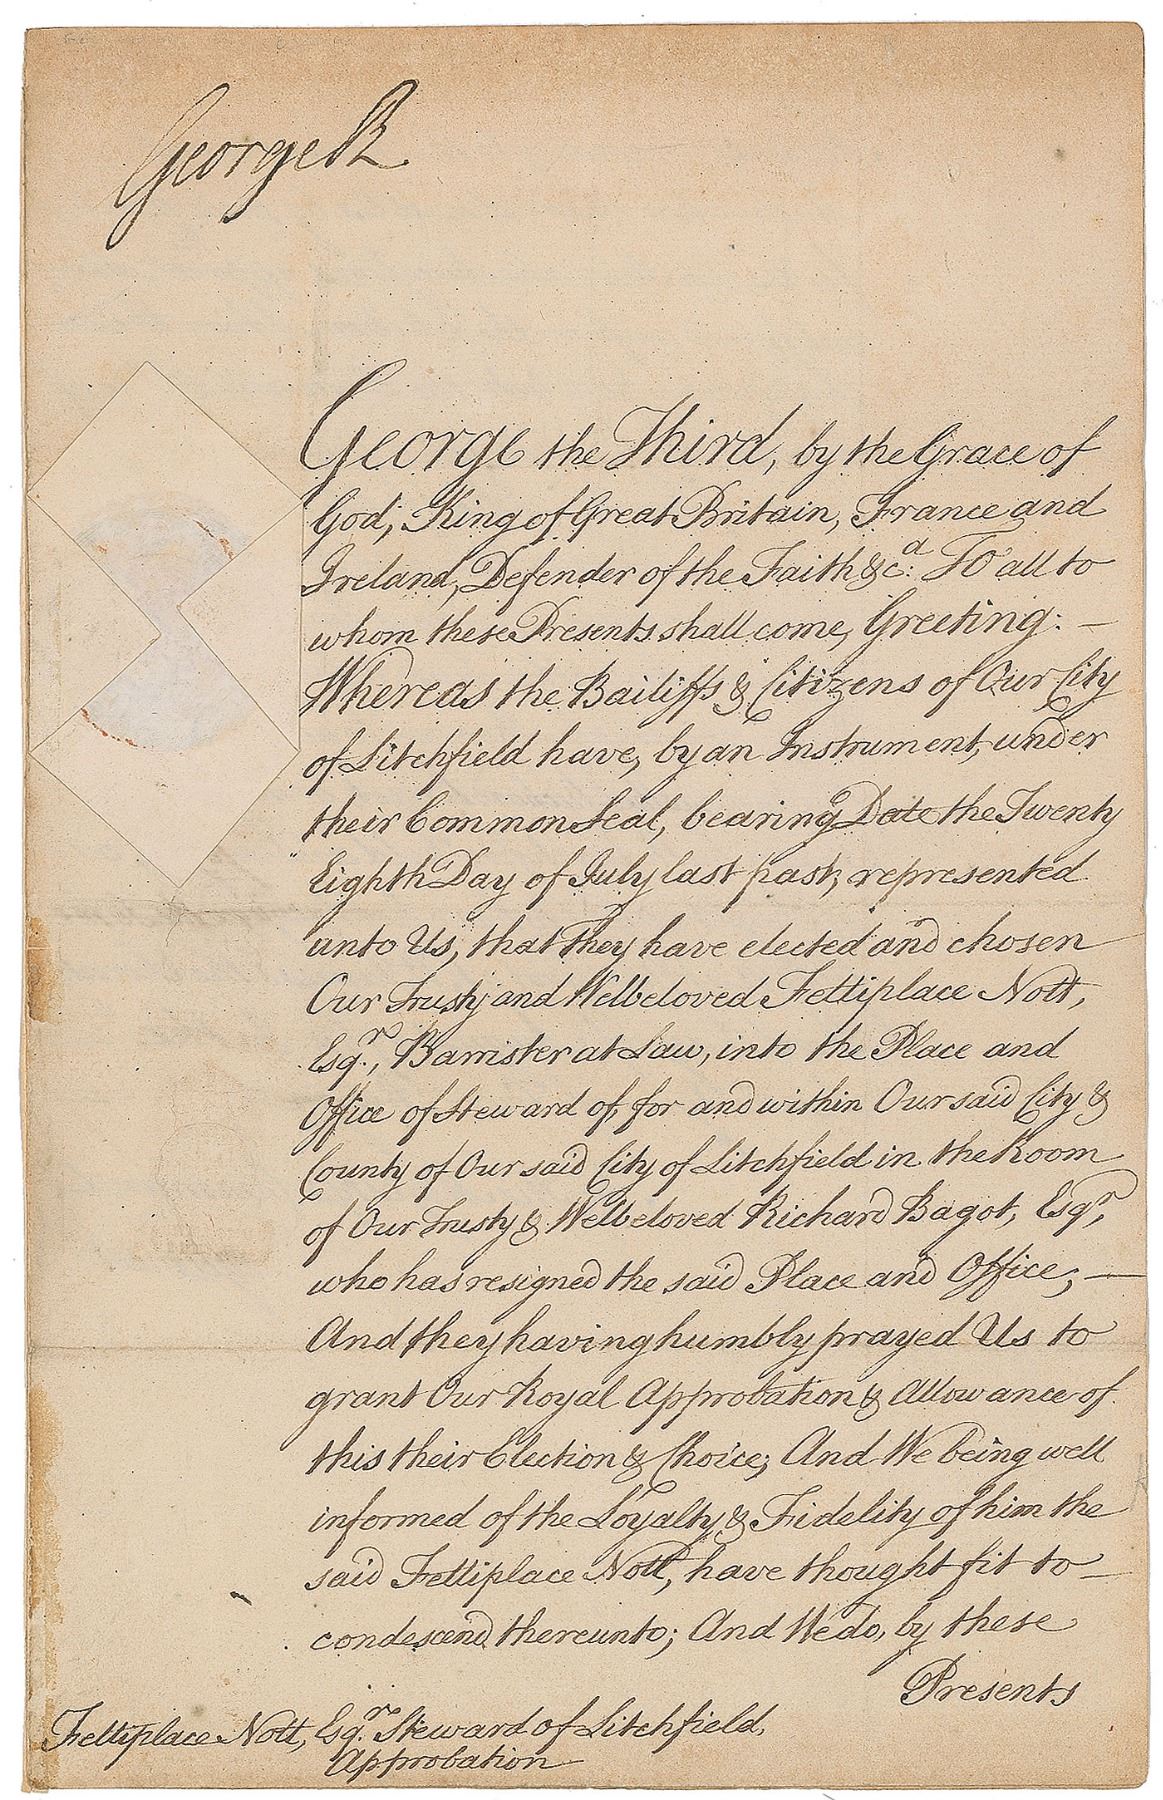 George R
George the Third, by the Grace of
God, King of Great Britain, France and
Ireland, Defender of the Faith &c.a To all to
whom these Presents shall come, Greeting: —
Whereas the Bailiffs & Citizens of Our City
of Litchfield have, by an Instrument, under
their Common Seal, bearing Date the Twenty
Eighth Day of July last past, represented
unto Us, that They have elected and chosen
Our Trusty and Welbeloved Fettiplace Nott,
Esqr., Barrister at Law, into the Place and
Office of Steward of, for and within Our said City &
County of Our said City of Litchfield in the Room
of Our Trusty & Welbeloved Richard Bagot, Esqr,
who has resigned the said Place and Office; —
And they having humbly prayed Us to
grant Our Royal Approbation & Allowance of
this their Election & Choice; And We being well
informed of the Loyalty & Fidelity of him the
said Fettiplace Nott, have thought fit to —
condescend thereunto; And We do, by these
Presents
Fettiplace Nott, Esqr. Steward of Litchfield,
Approbation